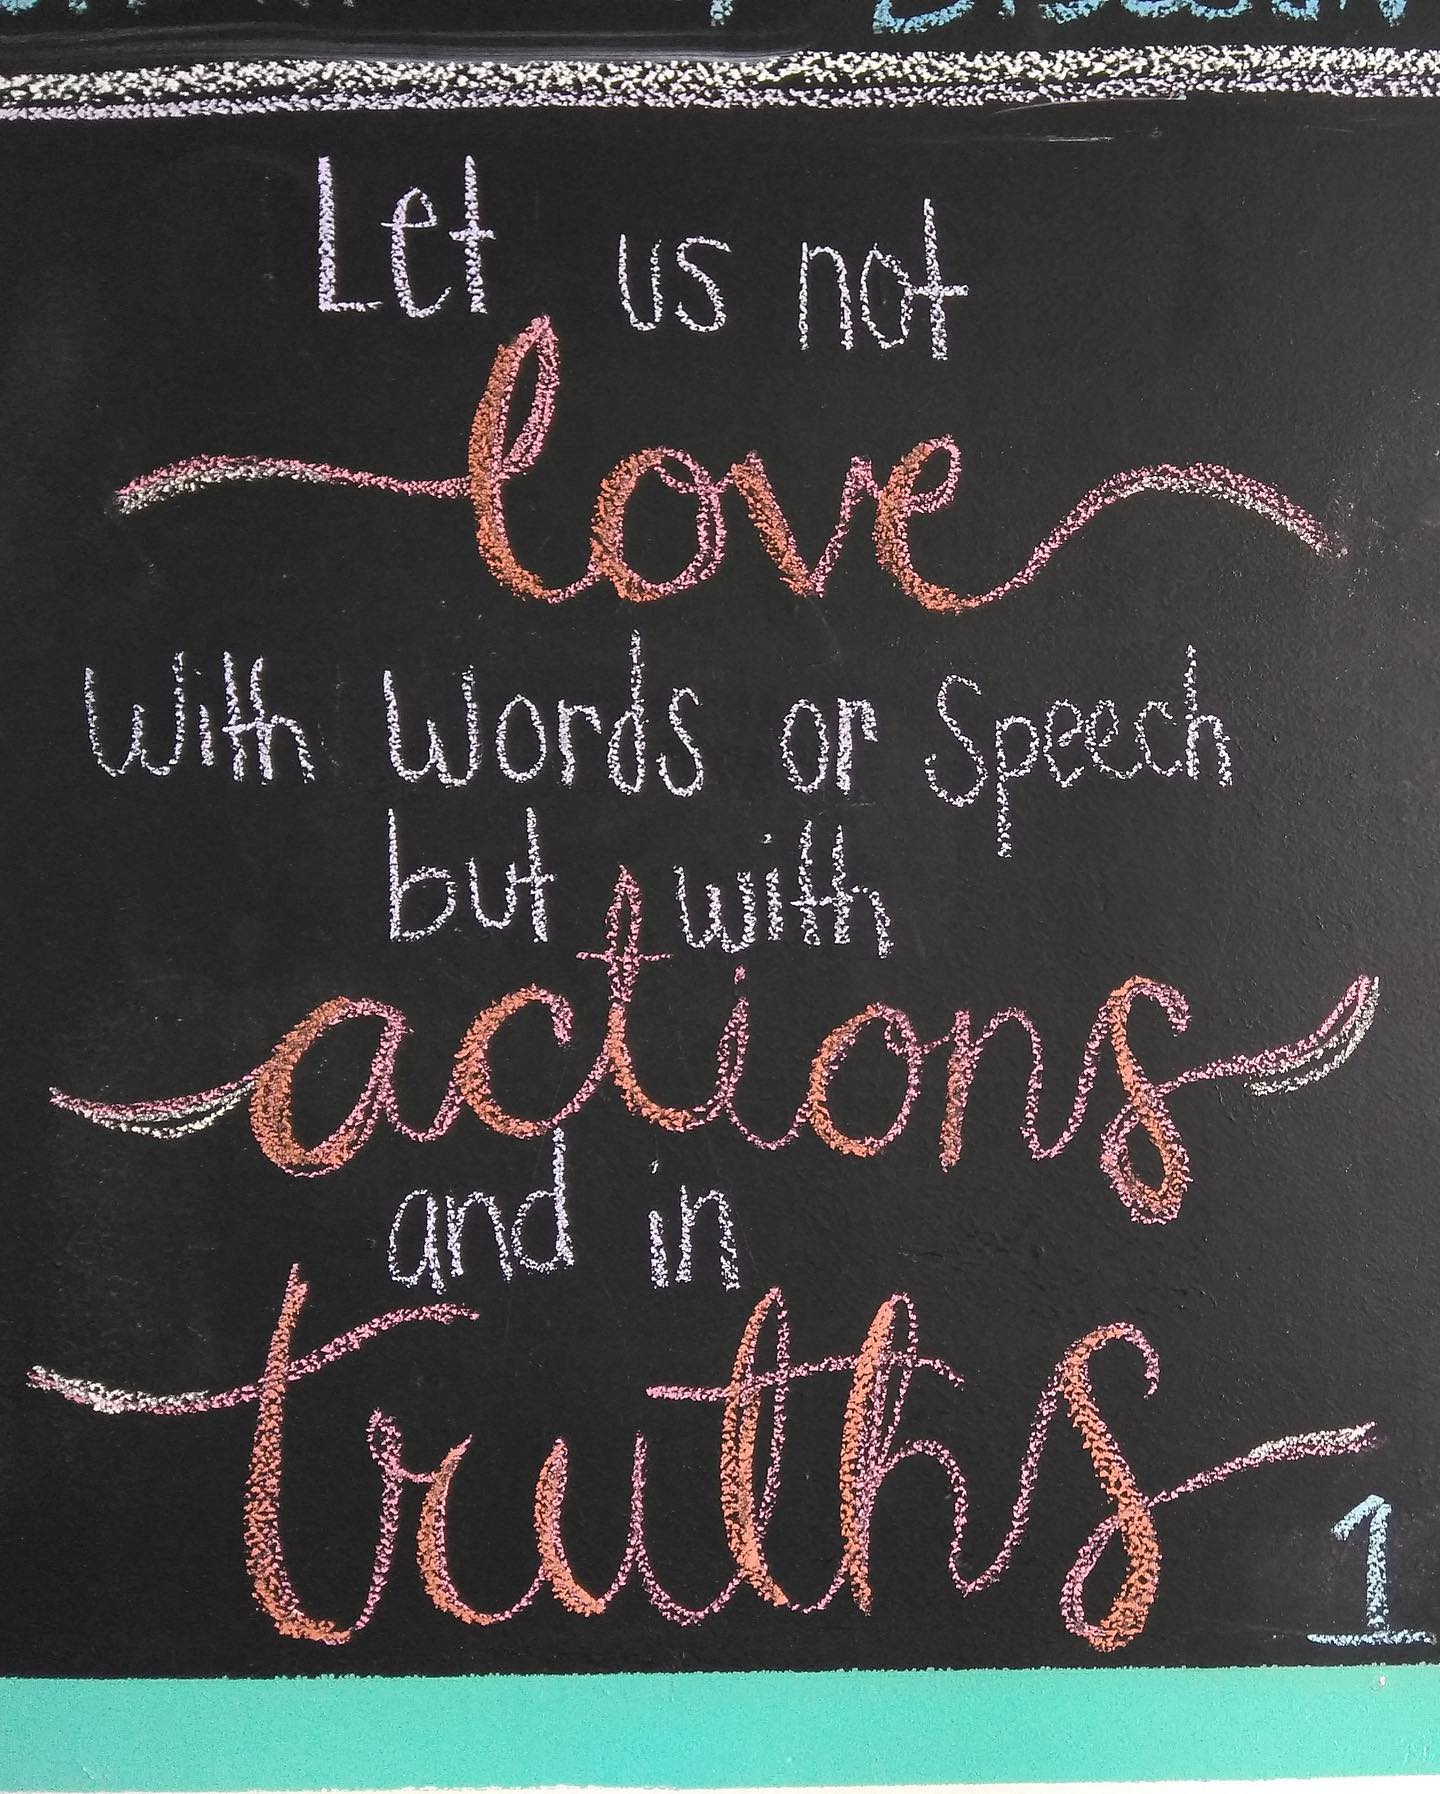 Let us not
love
With Words or Speech
but with
actions
and in
truths
1